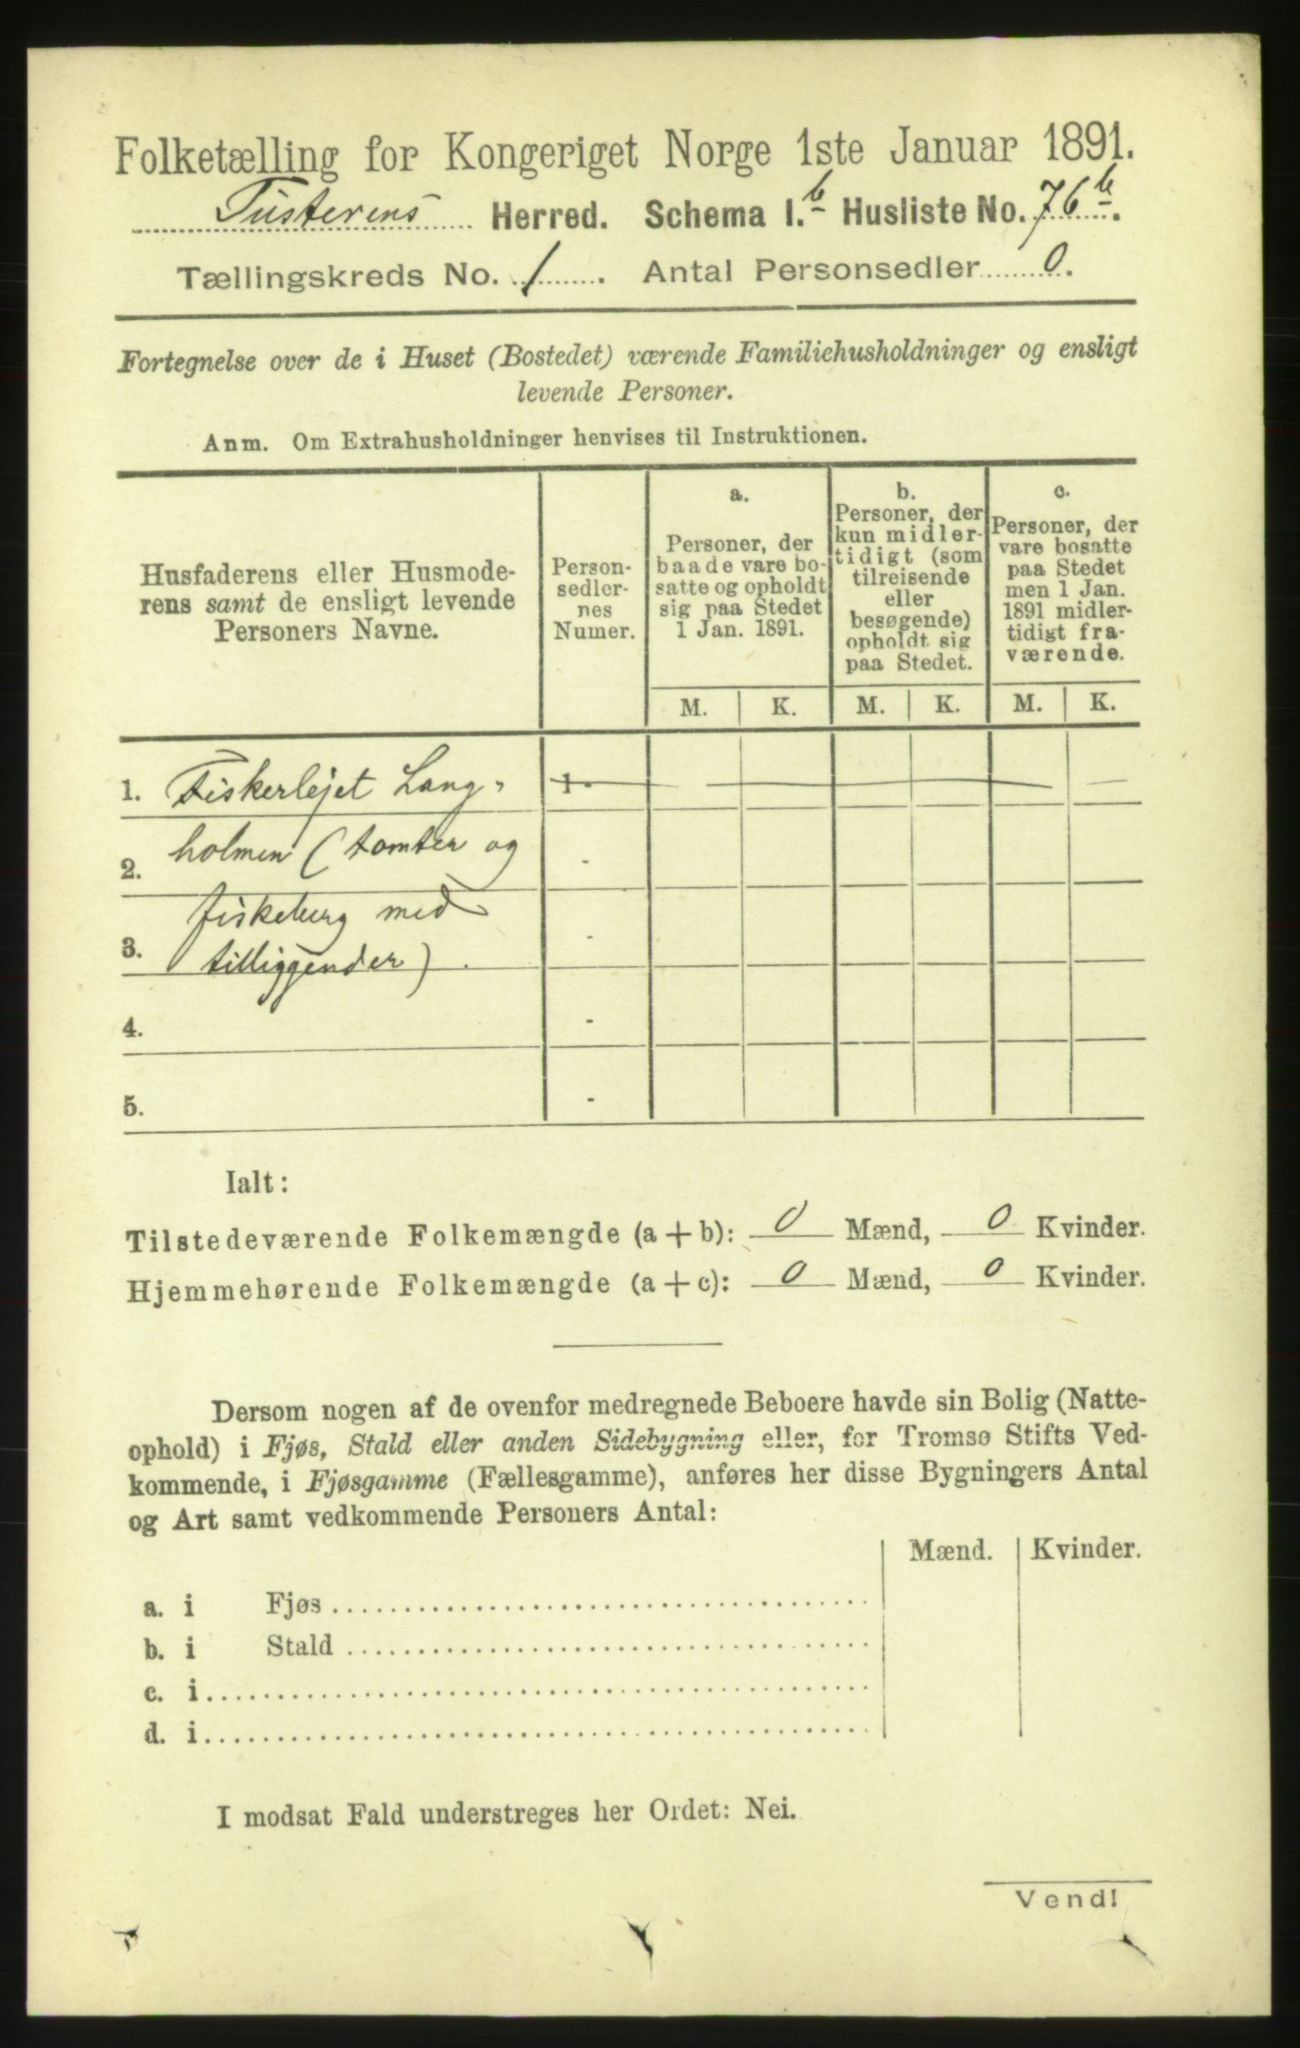 Folketælling for Kongeriget Norge 1ste Januar 1891.
Tusterens Herred. Schema I.b Husliste No. 76b.
Tællingskreds No. 1. Antal Personsedler 0.
Fortegnelse over de i Huset (Bostedet) værende Familiehusholdninger og ensligt
levende Personer.
Anm. Om Extrahusholdninger henvises til Instruktionen.
Husfaderens eller Husmode-
rens samt de ensligt levende
Personers Navne.
Person-
sedler-
nes
Numer.
a.
Personer, der
baade vare bo-
satte og opholdt
sig paa Stedet
1 Jan. 1891.
b.
Personer, der
kun midler-
tidigt (som
tilreisende
eller
besøgende)
opholdt sig
paa Stedet.
c.
Personer, der
vare bosatte
paa Stedet
men 1 Jan.
1891 midler-
tidigt fra-
værende.
M. K. M. K. M. K.
1. Fiskerlejet Lang- 1 -
2. holmen (tomter og -
3. fiskeberg med -
tilliggender).
4. -
5. -
Ialt:
Tilstedeværende Folkemængde (a + b): 0 Mænd, 0 Kvinder.
Hjemmehørende Folkemængde (a + c): 0 Mænd, 0 Kvinder.
Dersom nogen af de ovenfor medregnede Beboere havde sin Bolig (Natte-
ophold) i Fjøs, Stald eller anden Sidebygning eller, for Tromsø Stifts Ved-
kommende, i Fjøsgamme (Fællesgamme), anføres her disse Bygningers Antal
og Art samt vedkommende Personers Antal:
Mænd. Kvinder.
a. i Fjøs
b. i Stald
c. i
d. i
I modsat Fald understreges her Ordet: Nei.
Vend!